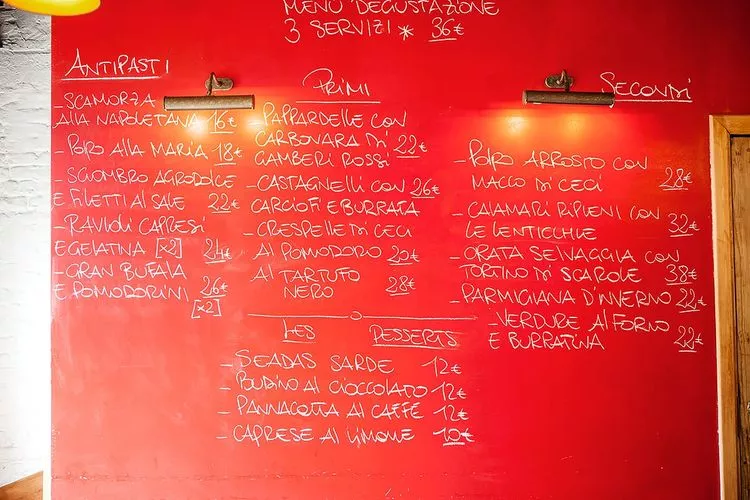 MENÙ DEGUSTAZIONE
3 SERVIZI * 36€
ANTIPASTI
- SCAMORZA
ALLA NAPOLETANA 16€
- POPO ALLA MARIA 18€
- SCIOMBRO AGRODOLCE
E FILETTI AL SALE 22€
- RAVIOLI CAPRESI
E GELATINA [x2] 24€
- GRAN BUFALA
E POMODORINI 26€
[x2]
PRIMI
- PAPPARDELLE CON
CARBONARA DI 22€
GAMBERI ROSSI
- CASTAGNELLI CON 26€
CARCIOFI E BURRATA
- CRESPELLE DI CECI
AL POMODORO 20€
AL TARTUFO
NERO 28€
SECONDI
- POLPO ARROSTO CON
MACCO DI CECI 28€
- CALAMARI RIPIENI CON
LE LENTICCHIE 32€
- ORATA SELVAGGIA CON
TORTINO DI SCAROLE 38€
- PARMIGIANA D'INVERNO 22€
- VERDURE AL FORNO
E BURRATINA 22€
LES DESSERTS
- SEADAS SARDE 12€
- BUDINO AL CIOCCOLATO 12€
- PANNACOTTA AL CAFFÈ 12€
- CAPRESE AL LIMONE 10€